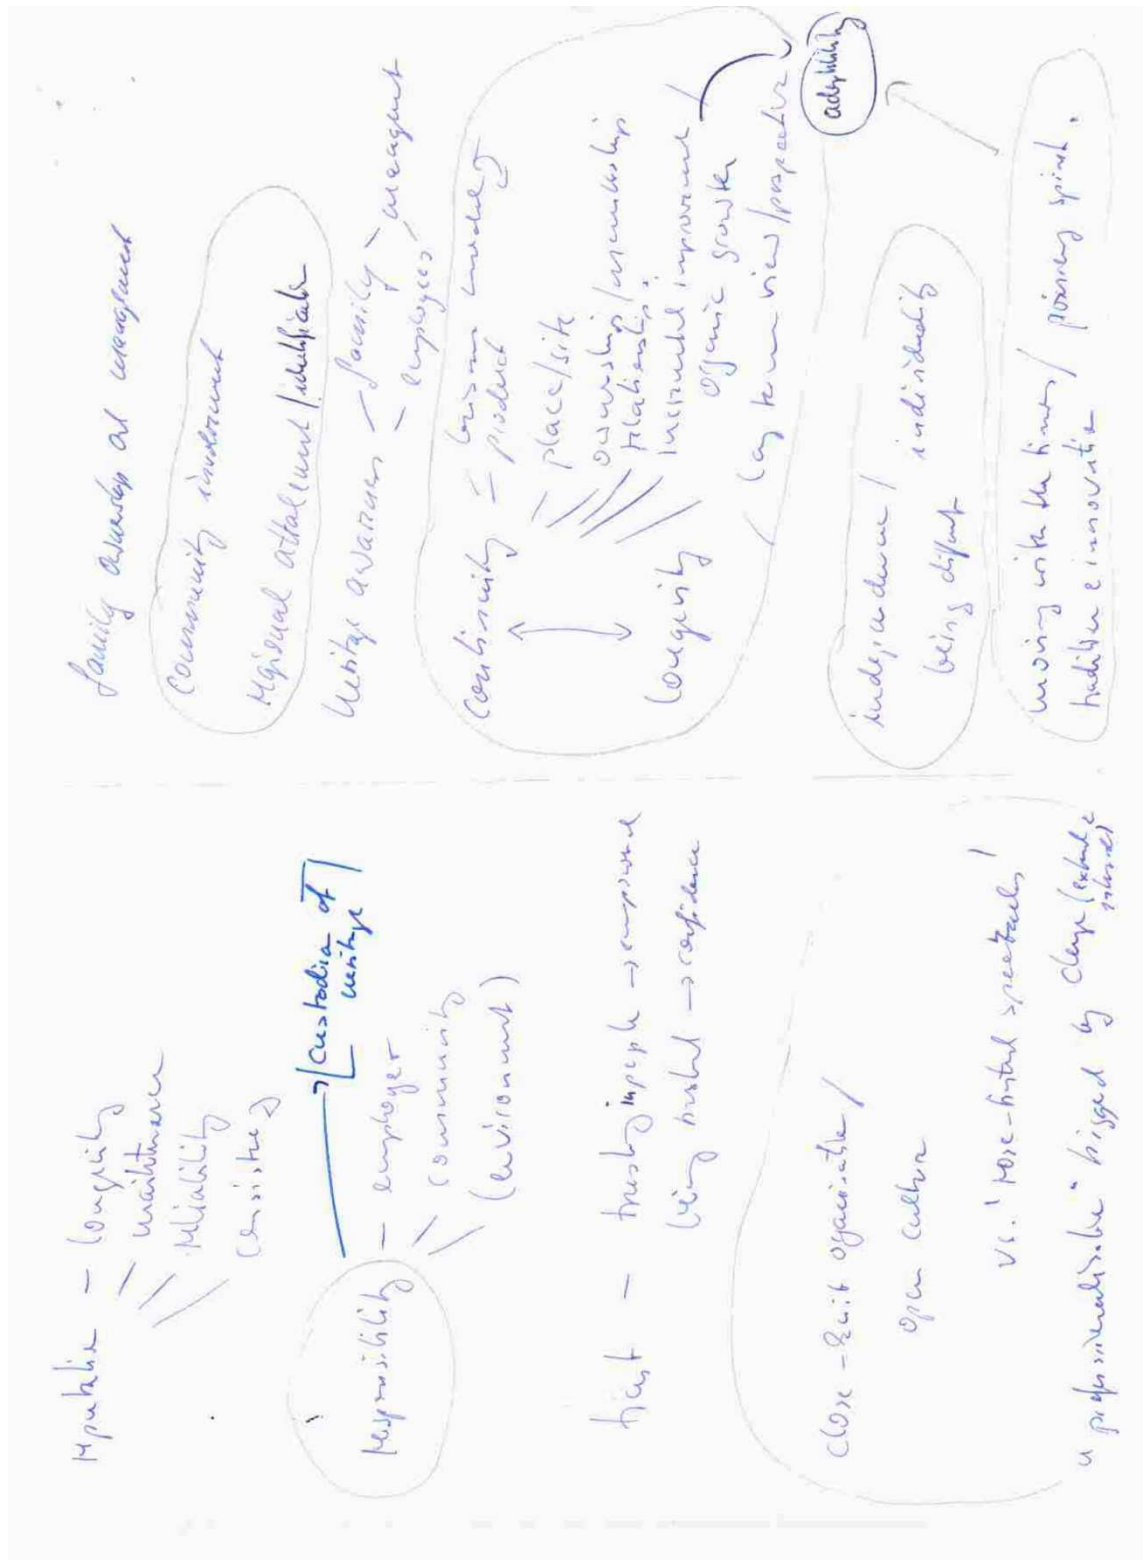 reputation – longevity
maintenance
reliability
consistency
responsibility – employer
community
(environment)
→ [custodian of
heritage]
trust – trusting in people → empowered
being trusted → confidence
close-knit organisation /
open culture
vs. 'rose-tinted spectacles'
"professionalisation" triggered by change (external &
internal)
family ownership and management
community involvement
regional attachment / identification
heritage awareness – family – management
– employees
continuity = business model
= product
place/site
ownership /
relationships
incremental improvement
organic growth
long term view / perspective
longevity
adaptability
independence / individuality
being different
moving with the times / pioneering spirit
tradition & innovation